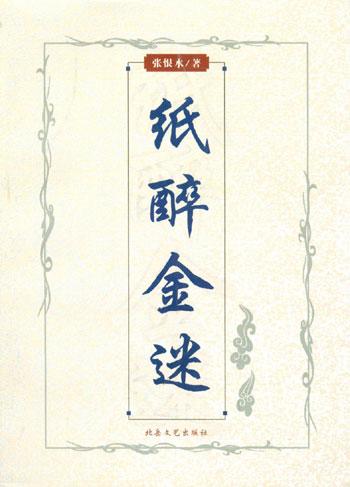 张恨水/著
纸醉金迷
北岳文艺出版社